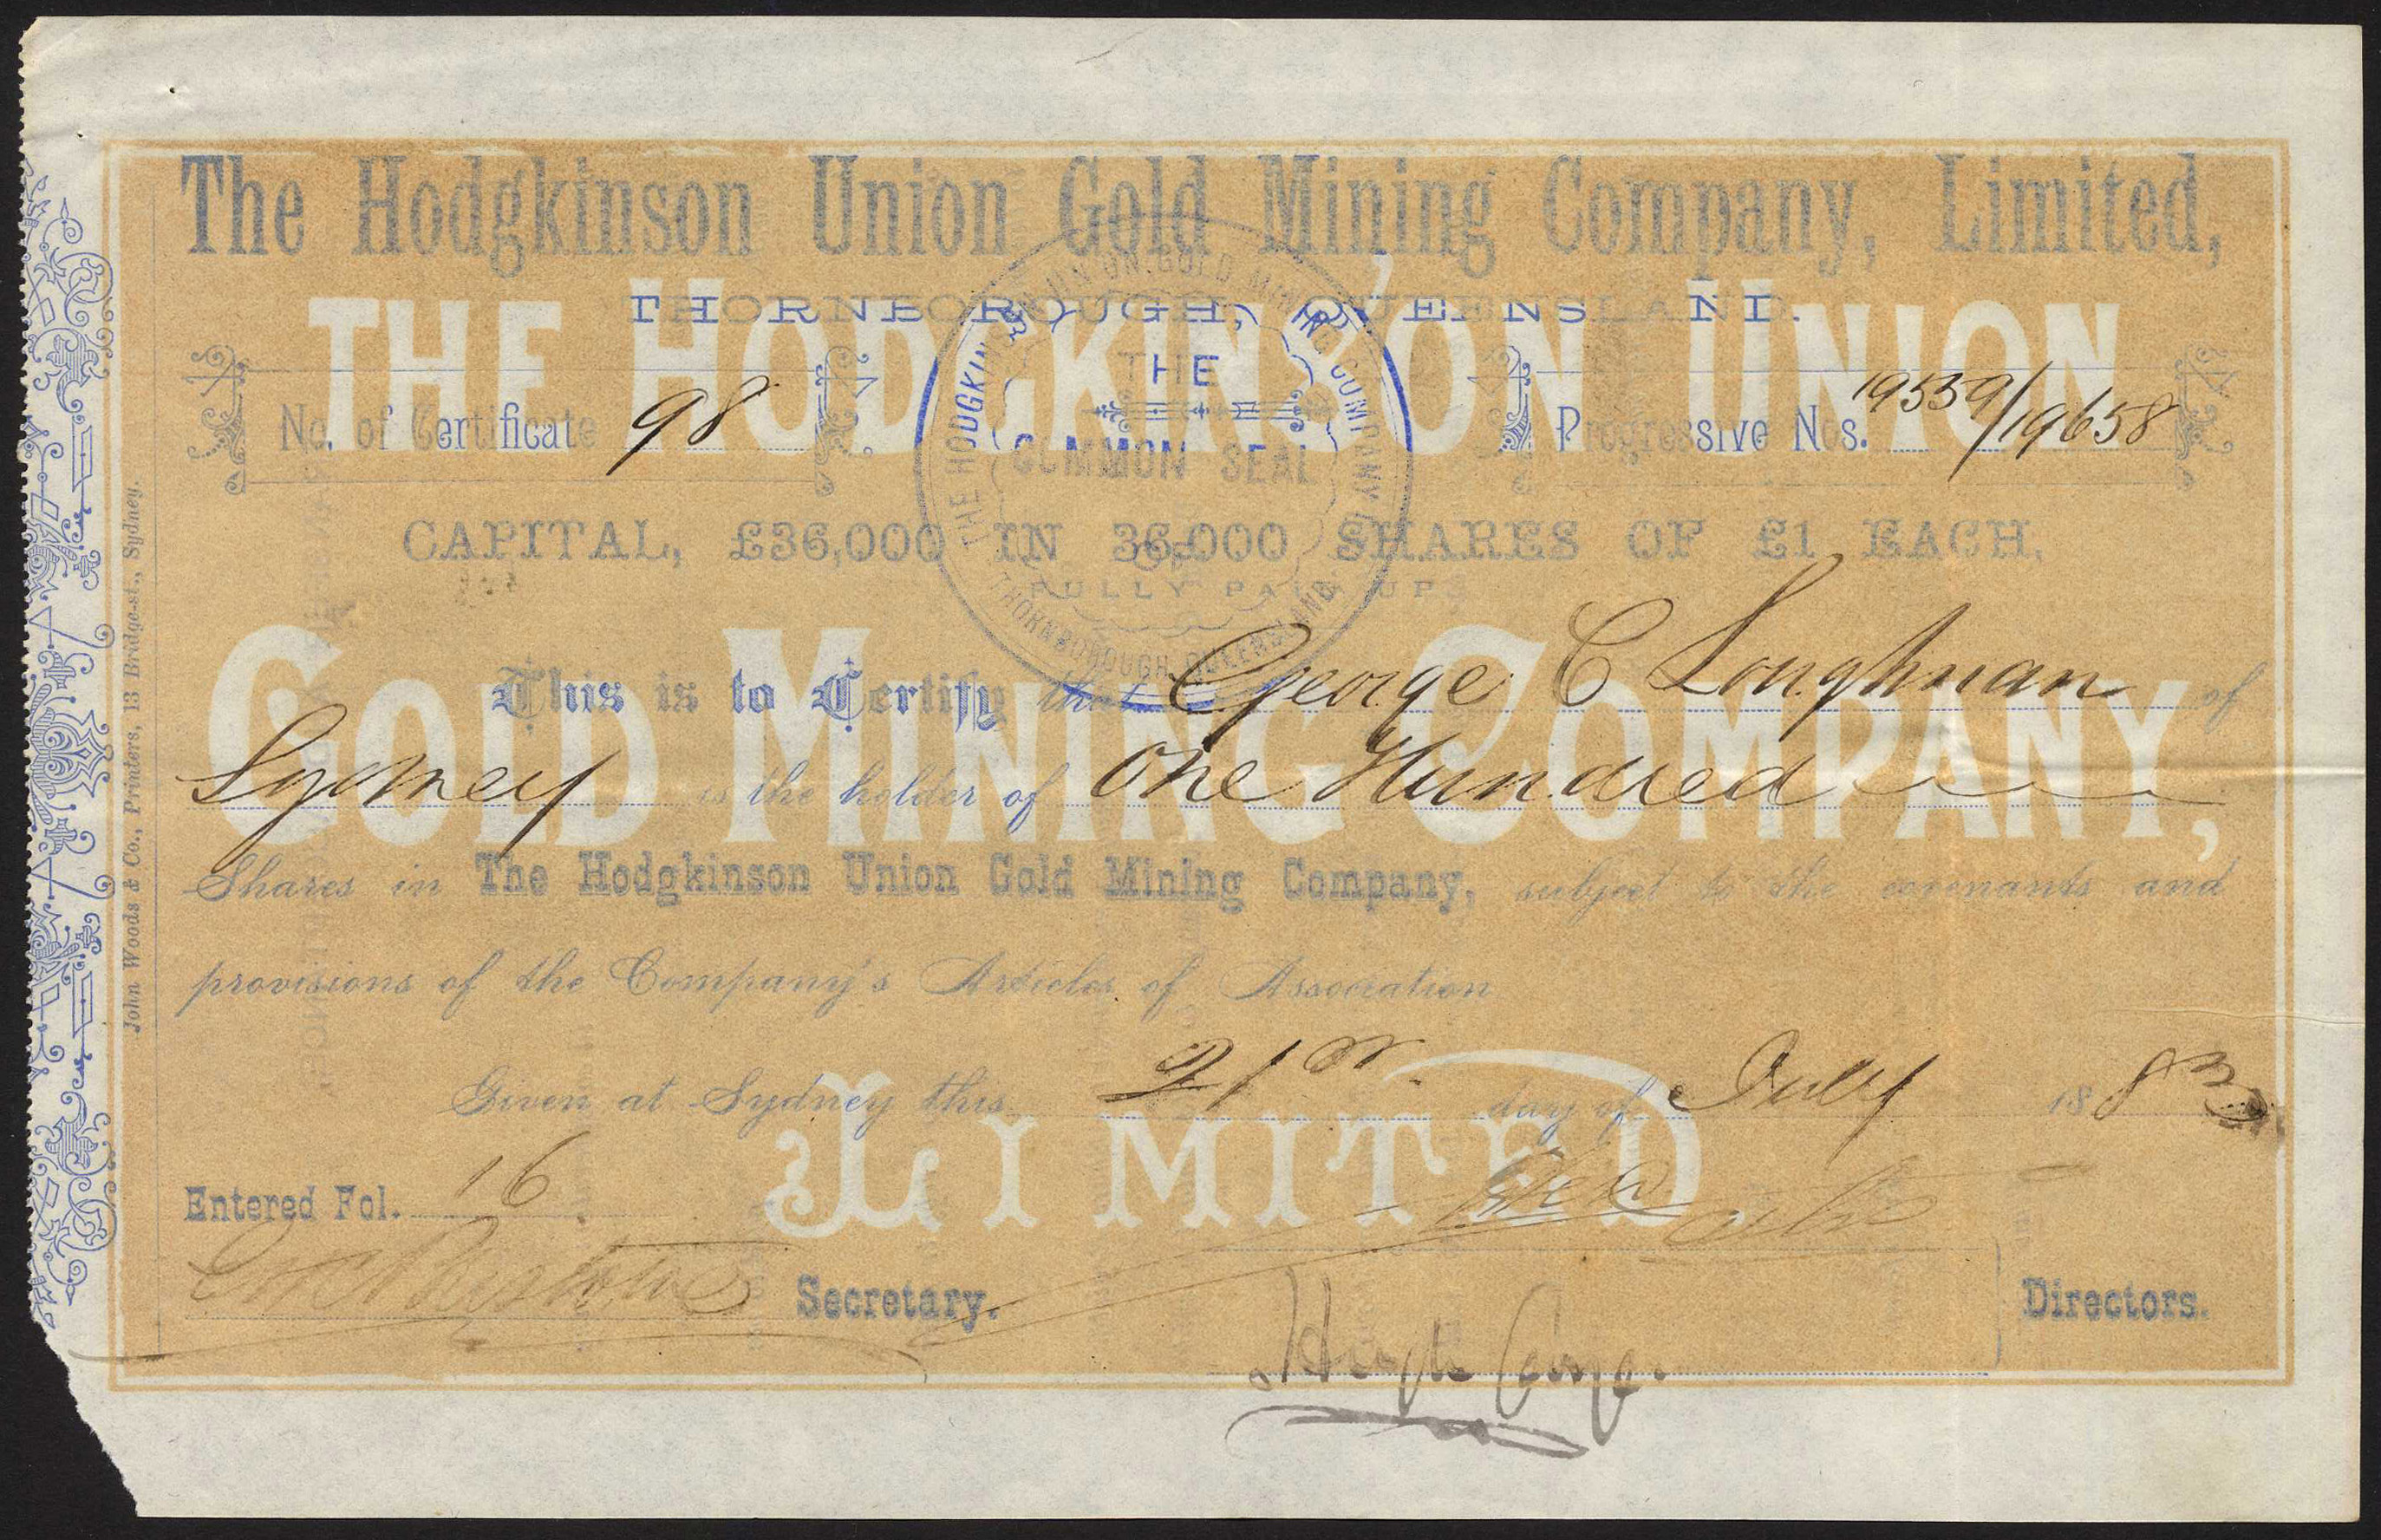 The Hodgkinson Union Gold Mining Company, Limited,
THORNBOROUGH, QUEENSLAND.
THE HODGKINSON UNION
No. of Certificate 98
Progressive Nos. 19559/19658
THE HODGKINSON UNION GOLD MINING COMPANY
THE
COMMON SEAL
OF
THORNBOROUGH QUEENSLAND
CAPITAL, £36,000 IN 36,000 SHARES OF £1 EACH,
FULLY PAID UP.
GOLD MINING COMPANY,
This is to Certify that George C Loughnan of
Sydney is the holder of One Hundred
Shares in The Hodgkinson Union Gold Mining Company, subject to the covenants and
provisions of the Company's Articles of Association
Given at Sydney this 21st day of July 1883
LIMITED
Entered Fol. 16
Secretary.
Directors.
John Woods & Co., Printers, 13 Bridge-st., Sydney.